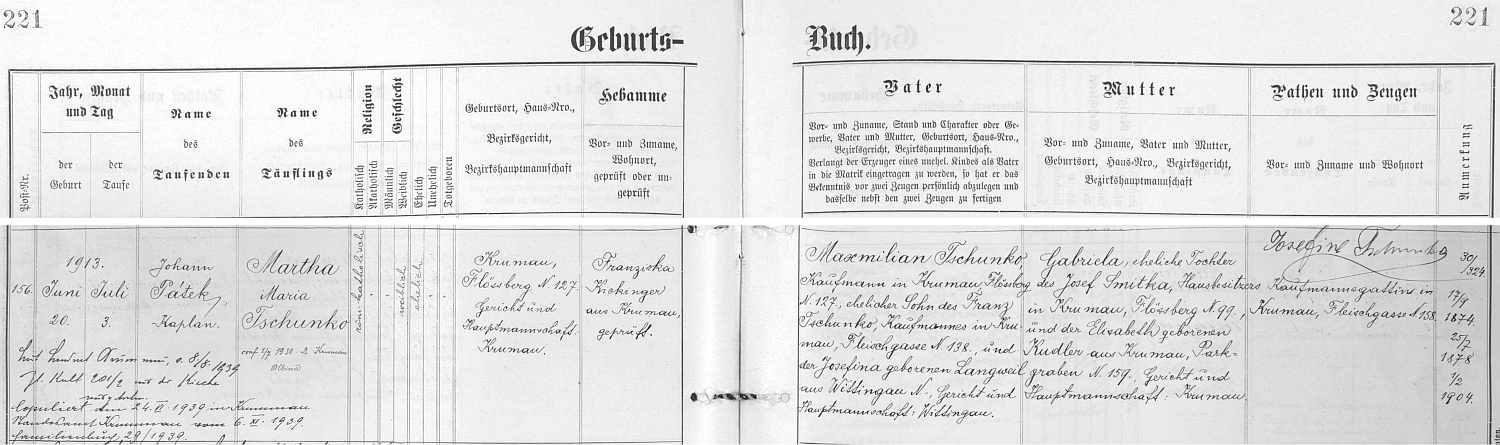 221
221
Geburts-
Buch.
Post-Nr.
Jahr, Monat
und Tag
der
Geburt
der
Taufe
Name
des
Taufenden
Name
des
Täuflings
Religion
Katholisch
Akatholisch
Geschlecht
Männlich
Weiblich
Ehelich
Unehelich
Totgeboren
Geburtsort, Haus-Nro.,
Bezirksgericht,
Bezirkshauptmannschaft
Hebamme
Vor- und Zuname,
Wohnort,
geprüft oder un-
geprüft
Vater
Vor- und Zuname, Stand und Charakter oder Ge-
werbe, Vater und Mutter, Geburtsort, Haus-Nro.,
Bezirksgericht, Bezirkshauptmannschaft.
Verlangt der Erzeuger eines unehel. Kindes als Vater
in die Matrik eingetragen zu werden, so hat er das
Bekenntnis vor zwei Zeugen persönlich abzulegen und
dasselbe nebst den zwei Zeugen zu fertigen
Mutter
Vor- und Zuname, Vater und Mutter,
Geburtsort, Haus-Nro., Bezirksgericht,
Bezirkshauptmannschaft
Pathen und Zeugen
Vor- und Zuname und Wohnort
Anmerkung
156.
1913.
Juni Juli
20. 3.
Johann
Patek,
Kaplan.
Martha
Maria
Tschunko
röm. katholisch
weiblich
ehelich
Krumau,
Flössberg N 127.
Gericht und
Hauptmannschaft:
Krumau.
Franziska
Kickinger
aus Krumau,
geprüft.
Maxmilian Tschunko,
Kaufmann in Krumau, Flössberg
N. 127., ehelicher Sohn des Franz
Tschunko, Kaufmannes in Kru-
mau, Fleischgasse N 138., und
der Josefina geborenen Langweil
aus Wittingau N-, Gericht und
Hauptmannschaft: Wittingau.
Gabriela, eheliche Tochter
des Josef Smitka, Hausbesitzers
in Krumau, Flössberg N. 99.,
und der Elisabeth geborenen
Kudler aus Krumau, Park-
graben N. 159., Gericht und
Hauptmannschaft: Krumau.
Josefine Tschunko
Kaufmannsgattin in
Krumau, Fleischgasse N 138.
30/
324.
17/9
1874.
25/7
1878
1/2
1904.
1930
Krumau
Albina
8/8. 1939
Zl. Kult 201/2 aus der Kirche
copuliert den 24. VI. 1939 in Krummau
Standesamt Krummau vom 6. XI. 1939.
Familienbuch 29/1939.